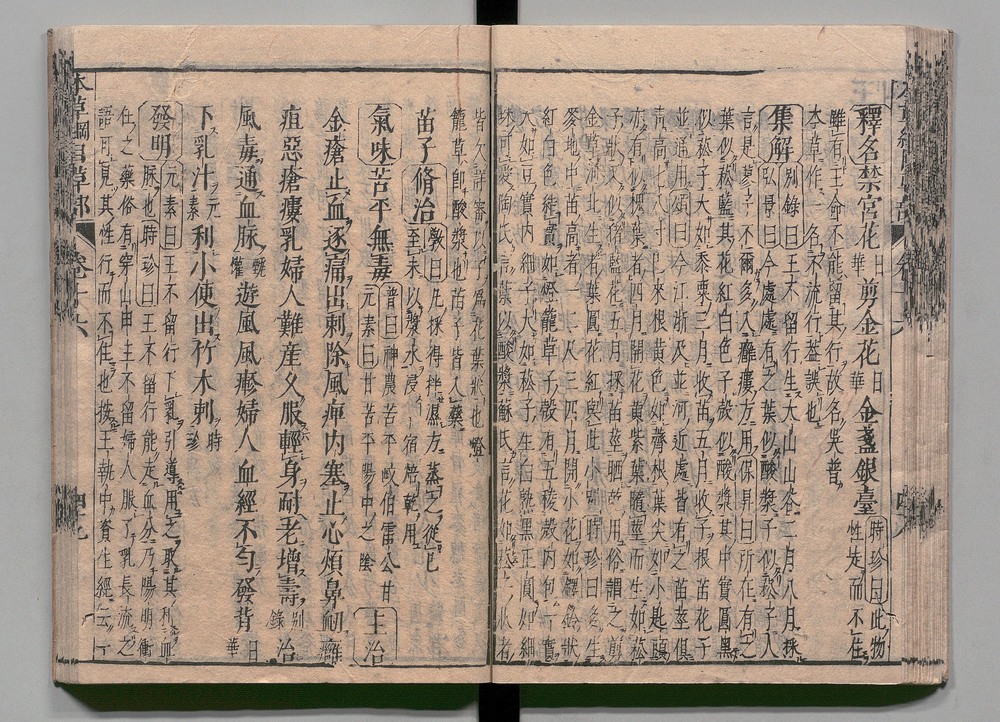 釋名禁宮花日華剪金花日華金盞銀臺時珍曰此物性走而不住
雖有王命不能留其行故名吳普
本草作一名不流行蓋誤也
集解別錄曰王不留行生太山山谷二月八月採弘景曰今處處有之葉似酸漿子似菘子人
言是蓼子不爾多入癰瘻方用保昇曰所在有之
葉似菘藍其花紅白色子殼似酸漿其中實圓黑
似菘子大如黍粟三月收苗五月收子根苗花子
並通用頌曰今江浙及並河近處皆有之苗莖俱
青高七八寸已來根黃色如薺根葉尖如小匙頭
亦有似槐葉者四月開花黃紫色隨莖而生如菘
子狀又似猪藍花五月採苗莖晒乾用俗謂之剪
金草河北生者葉圓花紅與此小別時珍曰多生
麥地中苗高者一二尺三四月開小花如鐸鈴狀
紅白色結實如燈籠草子殼有五稜殼內包一實
大如豆實內細子大如菘子生白熟黑正圓如細
珠可愛陶氏言葉似酸漿蘇氏言花如菘子狀者
皆欠詳審以子為花葉狀也燈
籠草即酸漿也苗子皆入藥
苗子 脩治斅曰凡採得拌濕蒸之從巳至未以漿水浸一宿焙乾用
氣味苦平無毒普曰神農苦平岐伯雷公甘元素曰甘苦平陽中之陰 主治
金瘡止血逐痛出刺除風痺內塞止心煩鼻衂癰
疽惡瘡瘻乳婦人難產久服輕身耐老增壽別錄治
風毒通血脉甄權遊風風瘮婦人血經不勻發背日華
下乳汁元素利小便出竹木刺時珍
發明元素曰王不留行下乳引導用之取其利血脉也時珍曰王不留行能走血分乃陽明衝
任之藥俗有穿山甲王不留婦人服了乳長流之
語可見其性行而不住也按王執中資生經云一
本草綱目草部
卷十六